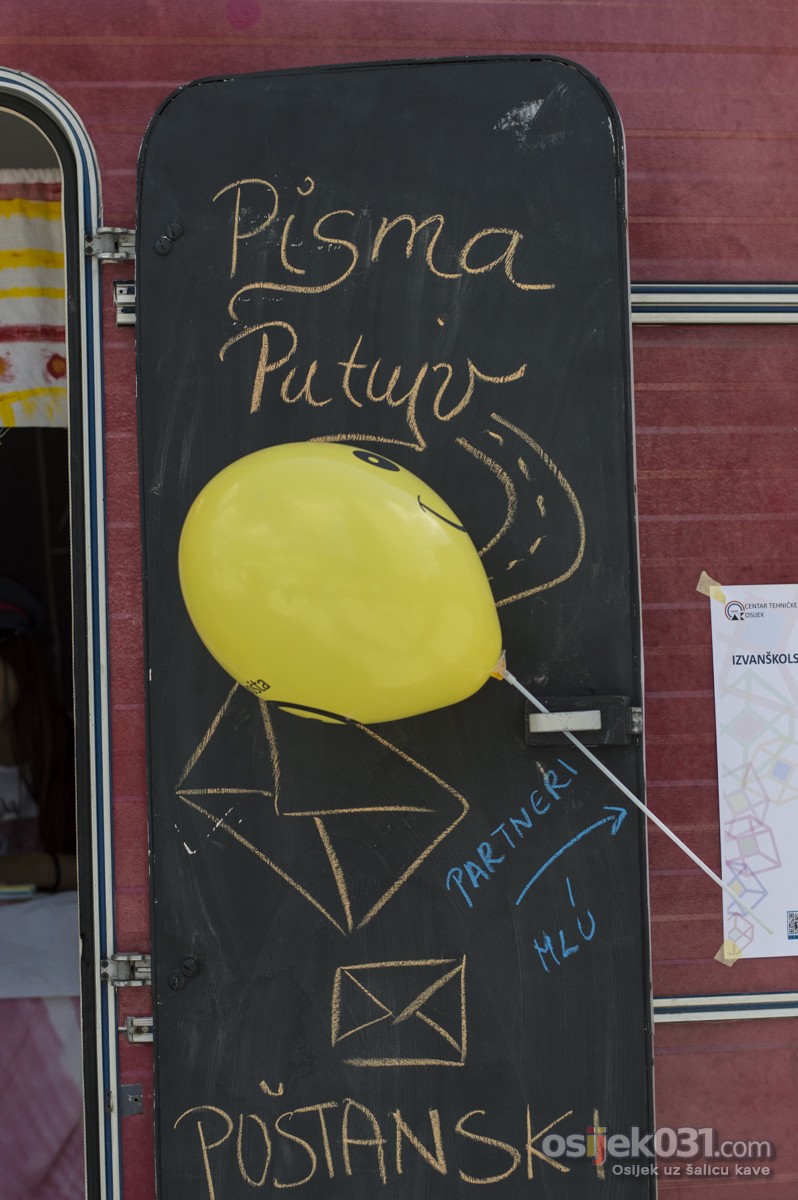 Pisma
Putuju
CENTAR TEHNIČKE
OSIJEK
IZVANŠKOLS
PARTNERI
I
MLU
POŠTANSKI
osijek031.com
Osijek uz šalicu kave